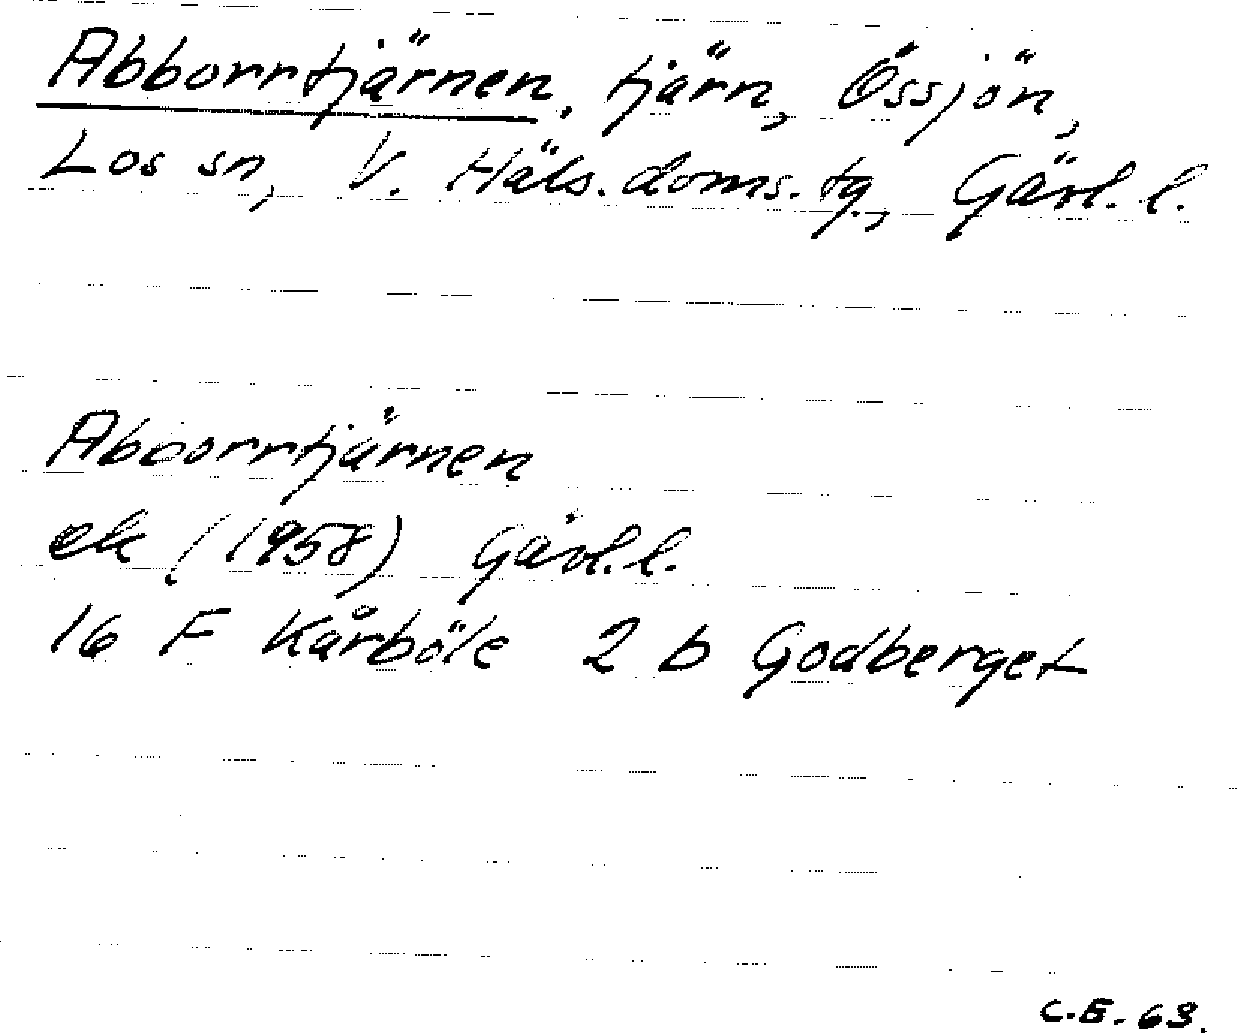 Abborrtjärnen, tjärn, Össjön,
Los sn, V. Häls. doms. tg., Gävl. l.
Abborrtjärnen
ek (1958) Gävl. l.
16 F Kårböle 2 b Godberget
C.E. 63.